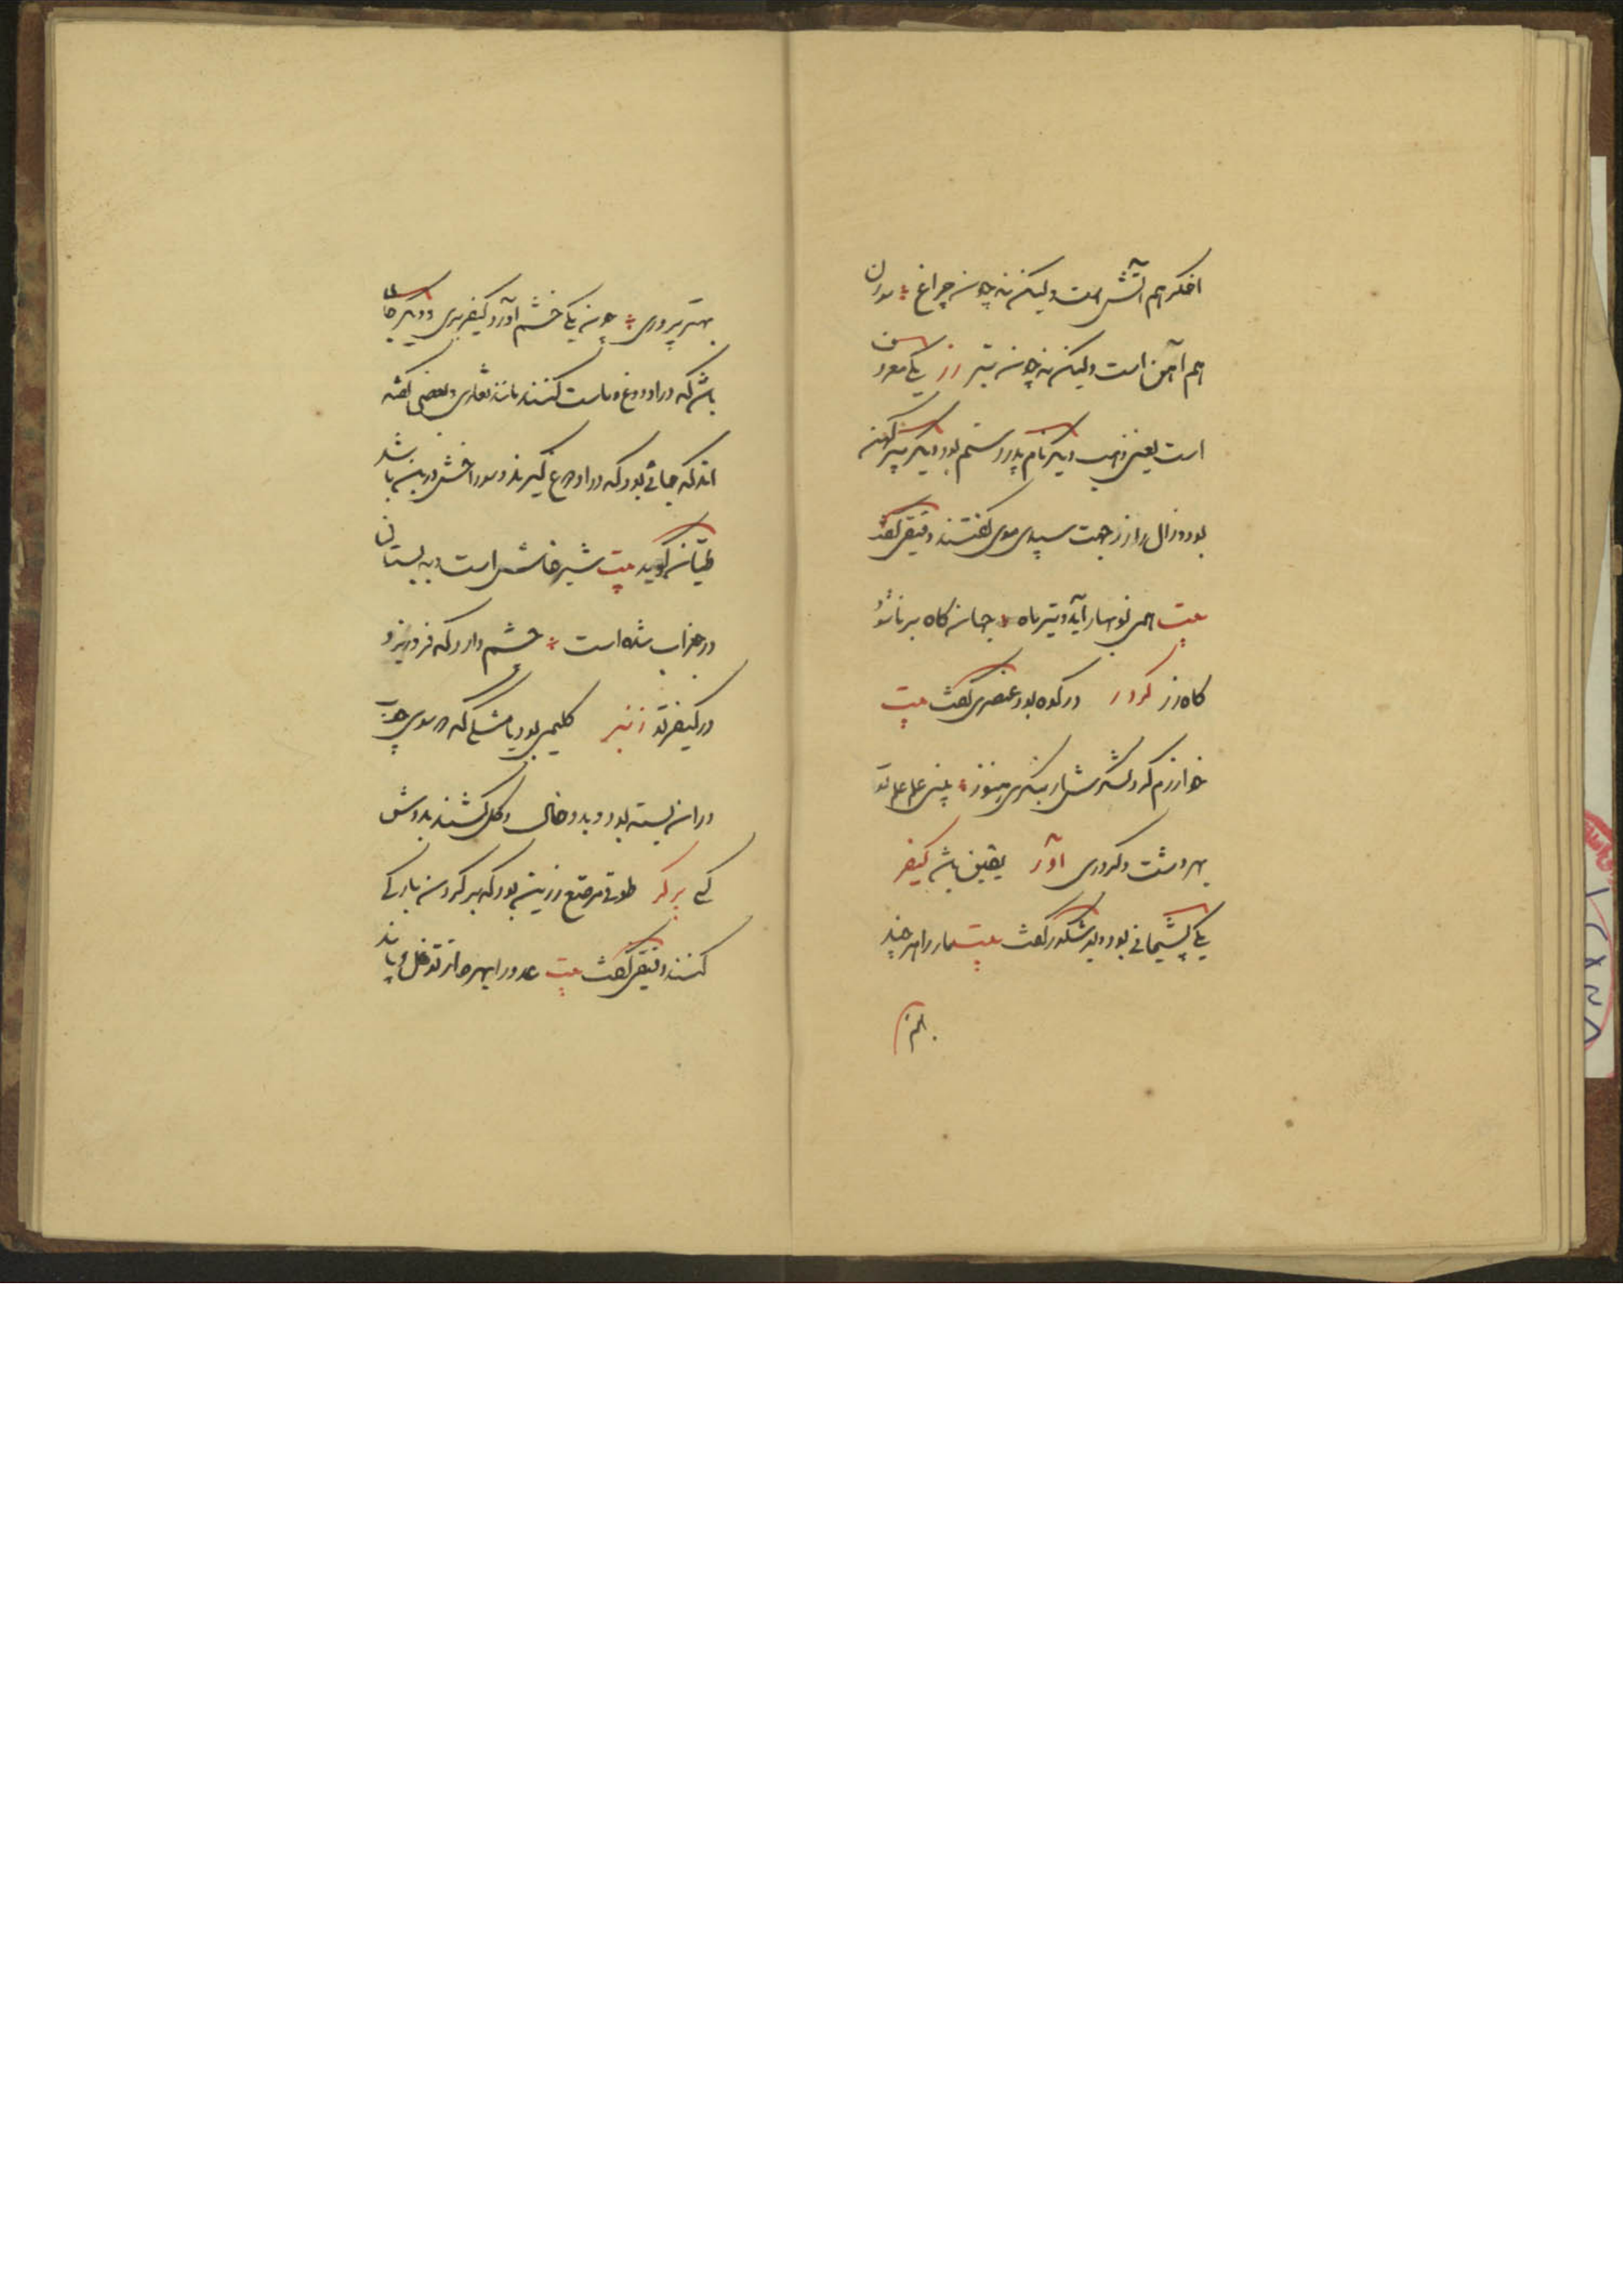 اخگر هم آتش است ولیکن نه چون چراغ سوزن
هم آهن است ولیکن نه چون تبر زر یکی معروف
است یعنی ذهب دیگر نام پدر رستم بود دیگر پیر کهن
بود و زال را زر از جهت سپیدی موی گفتند دقیقی گفت
بیت همی نوبهار آید و تیرماه جهان گاه برنا شود
گاه زر کردر در کوه بود عنصری گفت بیت
خوارزم گرد لشکرش ار بنگری هنوز بینی علم علم تو
بهر دشت و کردری آور یقین باشد کیفر
یکی پشیمانی بود و بوشکور گفت بیت مار را هر چند
بهتر
بهتر پروری چون یکی خشم آورد کیفر بری و دیگر جائی
باشد که در او دوغ و ماست کنند مانند تغاری و بعضی گفته
اند که جائی بود که در او دوغ گیرند و سوراخش در بن باشد
طیان گوید بیت شیر غاش است و به پستان
در جغرات شده است چشم دارد که فرو ریزد
در کیفر تو زنبر گلیمی بود یا مشکی که دو سوی چوب
در آن بسته بود و بدو خاک و گل کشند بدوش
کی پرگر طوقی مرصع زرین بود که بر گردن بارگی
کنند دقیقی گفت بیت عدو را بهره از تو غل و پاوند